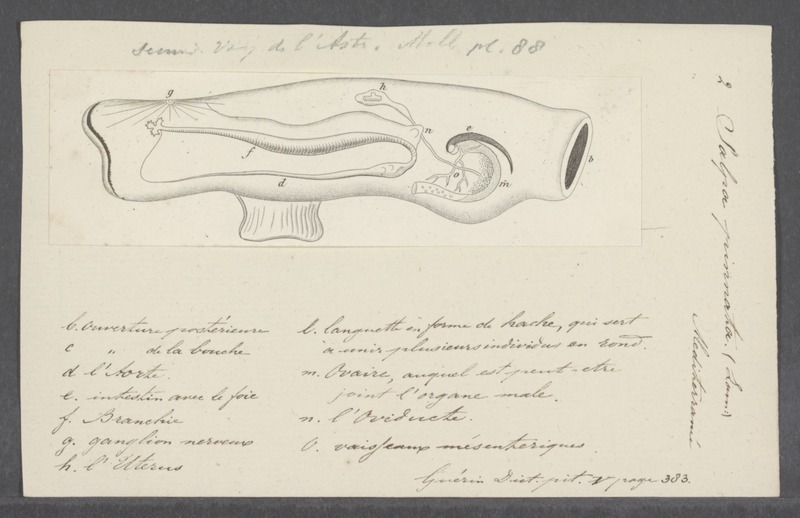 Voy de l'Astr. Moll pl. 88
g
h
n
e
b
f
o
m
d
2 Salpa pinnata. (Linn)
Mediterrané
b. Ouverture postérieure
c " de la bouche
d l'Aorte.
e. intestin avec le foie
f. Branchie
g. ganglion nerveux
h. l'Utterus
l. languette en forme de hache, qui sert
à unir plusieurs individus en rond.
m. Ovaire, auquel est peut-etre
joint l'organe male.
n. l'Oviducte.
O. vaisseaux mésenteriques
Guérin Dict. pit. V page 383.